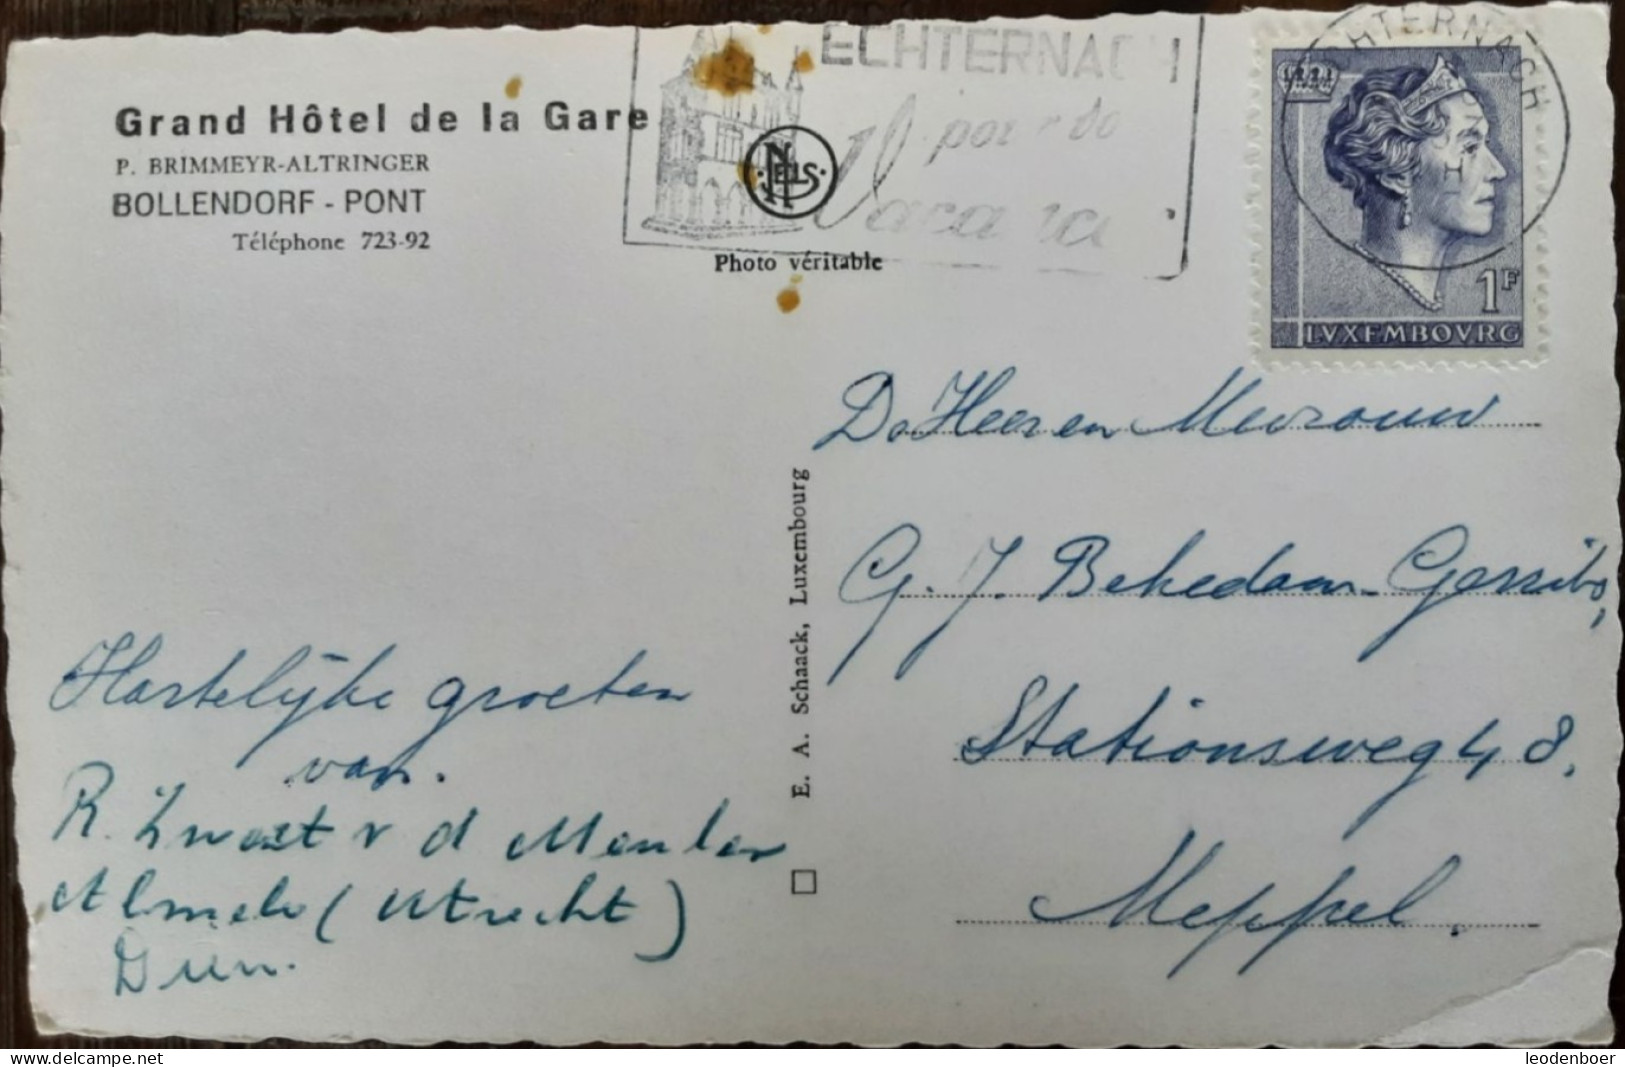 Grand Hôtel de la Gare
P. BRIMMEYR-ALTRINGER
BOLLENDORF - PONT
Téléphone 723-92
ECHTERNACH
Vacances
NELS
Photo véritable
ECHTERNACH
1F
LVXEMBOVRG
E. A. Schaack, Luxembourg
De Heer en Mevrouw
G. J. Bekedam-Gerrits,
Stationsweg 48,
Meppel.
Hartelijke groeten
van.
R. Zwest v d Meulen
Almelo (Utrecht)
Dien.
leodenboer
www.delcampe.net